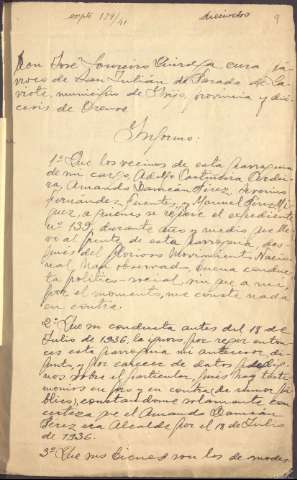 expte 139/41
dieciocho
9
Don José Loureiro cura pá-
rroco de San Julián de Parada de La-
viote, municipio de Irijo, provincia y dió-
cesis de Orense
Informo:
1º Que los vecinos de esta parroquia
de mi cargo Adolfo
Amando Damián Pérez, Severino
Fernández Fuentes y Manuel Pérez
a quienes se refiere el expediente
nº 139, durante año y medio que lle-
vo al frente de esta parroquia, des-
pués del glorioso Movimiento Nacio-
nal, han observado buena conduc-
ta político-social, sin que a mí,
por el momento, me conste nada
en contra.
2º Que su conducta antes del 18 de
Julio de 1936, la ignoro por regir enton-
ces esta parroquia mi anterior di-
funto, y por carecer de datos fidedig-
nos sobre el particular, pues hay testi-
monios en pro y en contra (de rumor pú-
blico), constándome solamente con
certeza que el Amando Damián
Pérez era Alcalde por el 18 de Julio
de 1936.
3º Que sus bienes son los de modes-